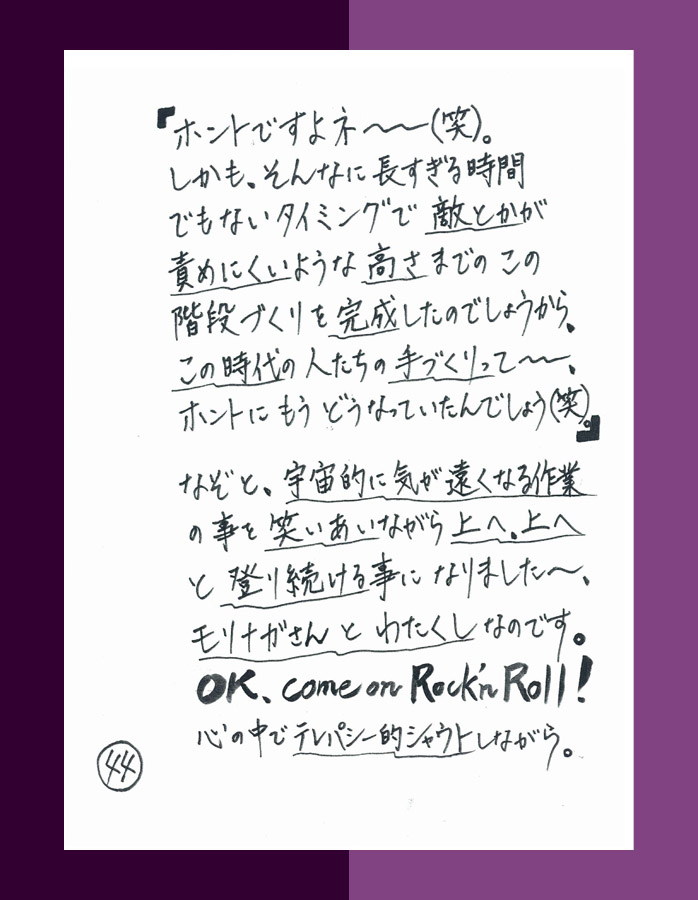 『ホントですよネ〜〜(笑)。
しかも、そんなに長すぎる時間
でもないタイミングで敵とかが
責めにくいような高さまでのこの
階段づくりを完成したのでしょうから、
この時代の人たちの手づくりって〜〜、
ホントにもうどうなっていたんでしょう(笑)。』
なぞと、宇宙的に気が遠くなる作業
の事を笑いあいながら上へ、上へ
と登り続ける事になりました〜、
モリナガさんとわたくしなのです。
OK、come on Rock'n Roll!
心の中でテレパシー的シャウトしながら。
44